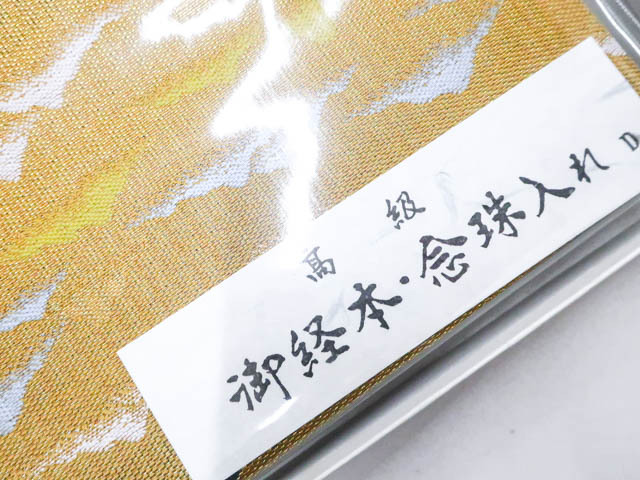 高級
御経本・念珠入れ D